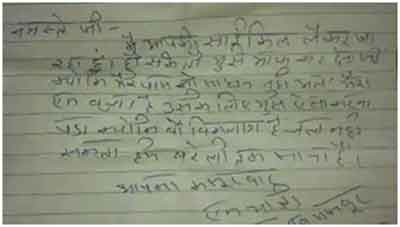 नमस्ते जी -
मैं आपकी साईकिल लेकर जा
रहा हूं। हो सके तो मुझे माफ कर देना जी
क्योंकि मेरे पास कोई साधन नही मेरा
एक बच्चा है उसके लिए मुझे ऐसा करना
पड़ा क्योंकि वो विकलांग है चल नही
सकता हमे बरेली तक जाना है।
आपका
एक